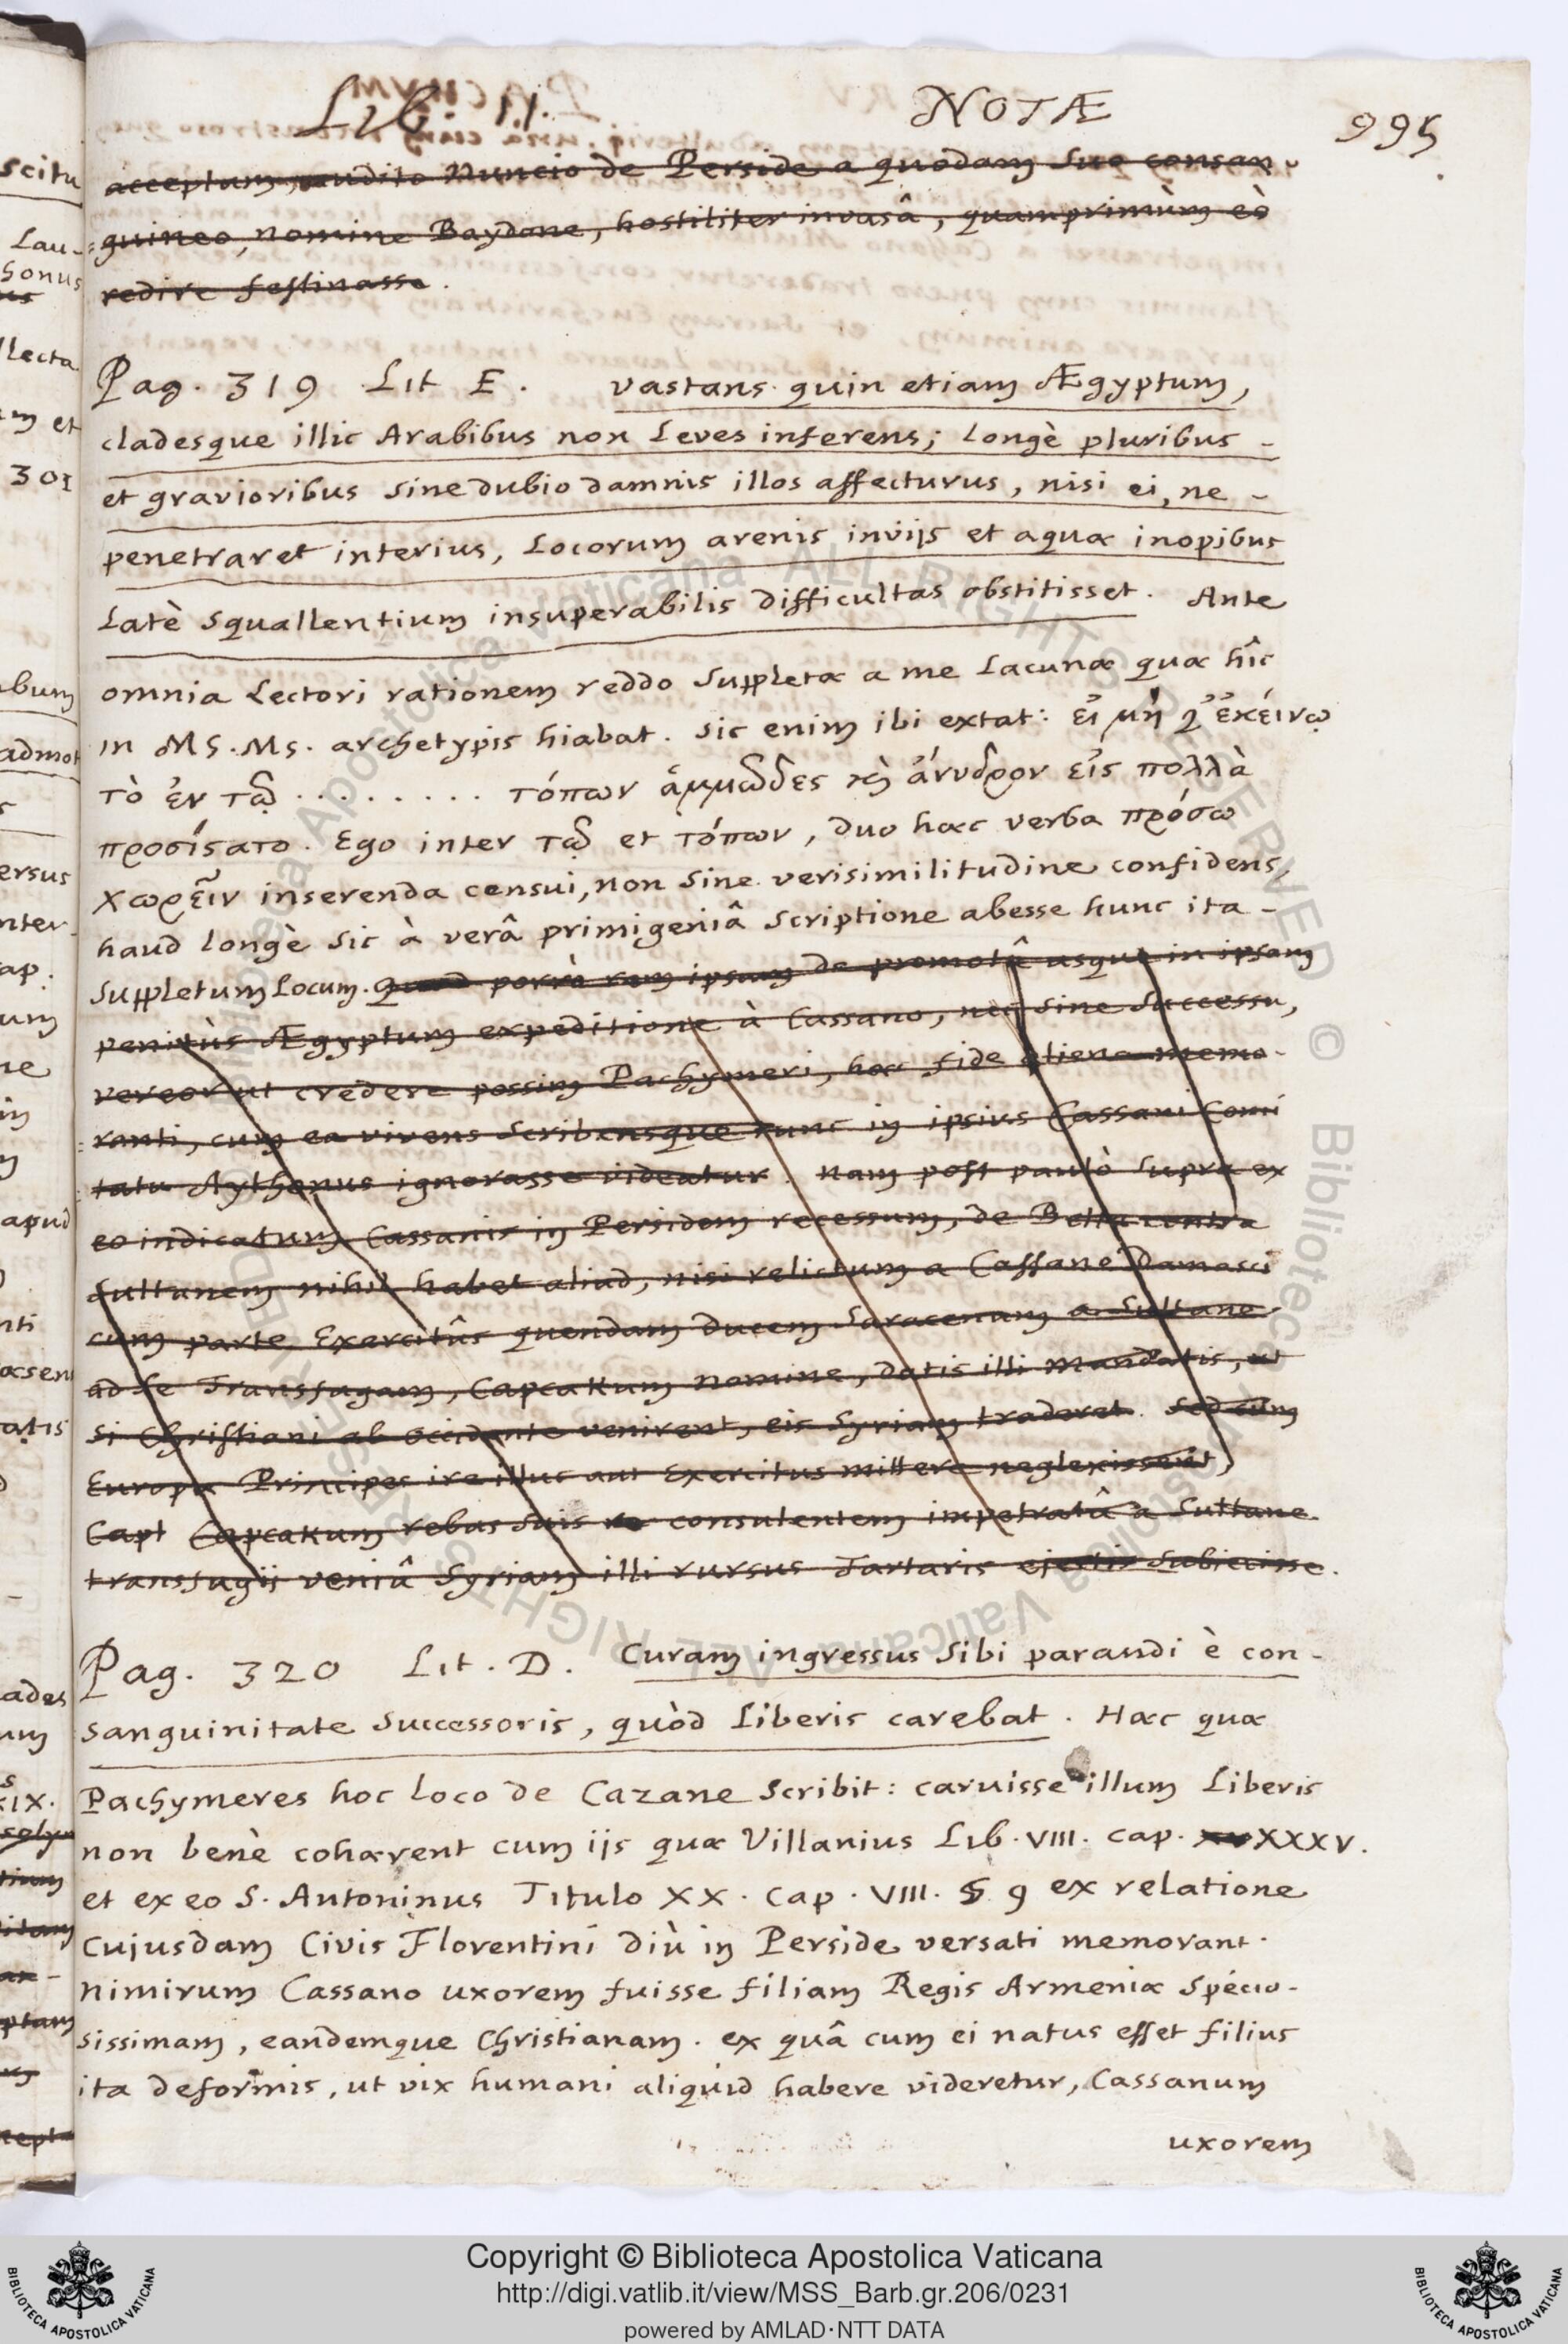 Lib. II. NOTÆ 995.
acceptum, audito Nuncio de Perside a quodam suo consan-
guineo, nomine Baydone, hostiliter invasâ, quamprimùm eò
redire festinasse.
Pag. 319 Lit E. vastans quin etiam Ægyptum,
cladesque illic Arabibus non leves inferens; longè pluribus
et gravioribus sine dubio damnis illos affecturus, nisi ei, ne
penetraret interius, locorum arenis invijs et aquæ inopibus
latè squallentium insuperabilis difficultas obstitisset. Ante
omnia Lectori rationem reddo suppletæ a me lacunæ quæ hîc
in MS.Ms. archetypis hiabat. sic enim ibi extat: εἰ μὴ ἐκείνῳ
τὸ ἐν τῷ ......... τόπων ἀμμῶδες καὶ ἄνυδρον εἰς πολλὰ
προσίστατο. Ego inter τῷ et τόπων, duo hæc verba πρόσω
χωρεῖν inserenda censui, non sine verisimilitudine confidens,
haud longè sic à verâ primigeniâ scriptione abesse hunc ita
suppletum locum. Quod porrò rem ipsam de promotâ usque in ipsam
penitùs Ægyptum expeditione à Cassano, nec sine successu,
vereor ut credere possim Pachymeri, hoc fide aliena memo-
ranti, cum ea vivens scribensque tunc in ipsius Cassani Comi
tatu Aythonus ignorasse videatur. Nam post paulò supra ex
eo indicatum Cassanis in Persidem recessum, de Bello contra
Sultanem nihil habet aliud, nisi relictum a Cassane Damasci
cum parte Exercitûs quendam Ducem Saracenum a Sultane
ad se Transfugam, Capcakum nomine, datis illi mandatis, ut
si Christiani ab occidente venirent, eis Syriam traderet. sed cum
Europæ Principes ire illuc aut Exercitus mittere neglexissent,
Capt Capcakum rebus suis consulentem impetratâ a Sultane
transfugij veniâ Syriam illi rursus Tartaris ejectis subiecisse.
Pag. 320 Lit. D. Curam ingressus sibi parandi è con-
sanguinitate successoris, quòd liberis carebat. Hæc quæ
Pachymeres hoc loco de Cazane scribit: caruisse illum liberis
non benè cohærent cum ijs quæ Villanius Lib. VIII. cap. XXXV.
et ex eo S. Antoninus Titulo XX. Cap. VIII. § 9 ex relatione
cujusdam Civis Florentini diù in Perside versati memorant.
nimirum Cassano uxorem fuisse filiam Regis Armeniæ specio-
sissimam, eandemque Christianam. ex quâ cum ei natus esset filius
ita deformis, ut vix humani aliquid habere videretur, Cassanum
uxorem
Copyright © Biblioteca Apostolica Vaticana
http://digi.vatlib.it/view/MSS_Barb.gr.206/0231
powered by AMLAD·NTT DATA